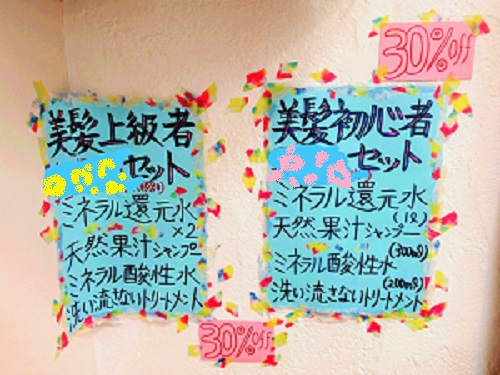 30%off
美髪上級者
セット
ミネラル還元水
×2
天然果汁シャンプー
ミネラル酸性水
洗い流さないトリートメント
美髪初心者
セット
ミネラル還元水
(1ℓ)
天然果汁シャンプー
(300mℓ)
ミネラル酸性水
(200mℓ)
洗い流さないトリートメント
30%off